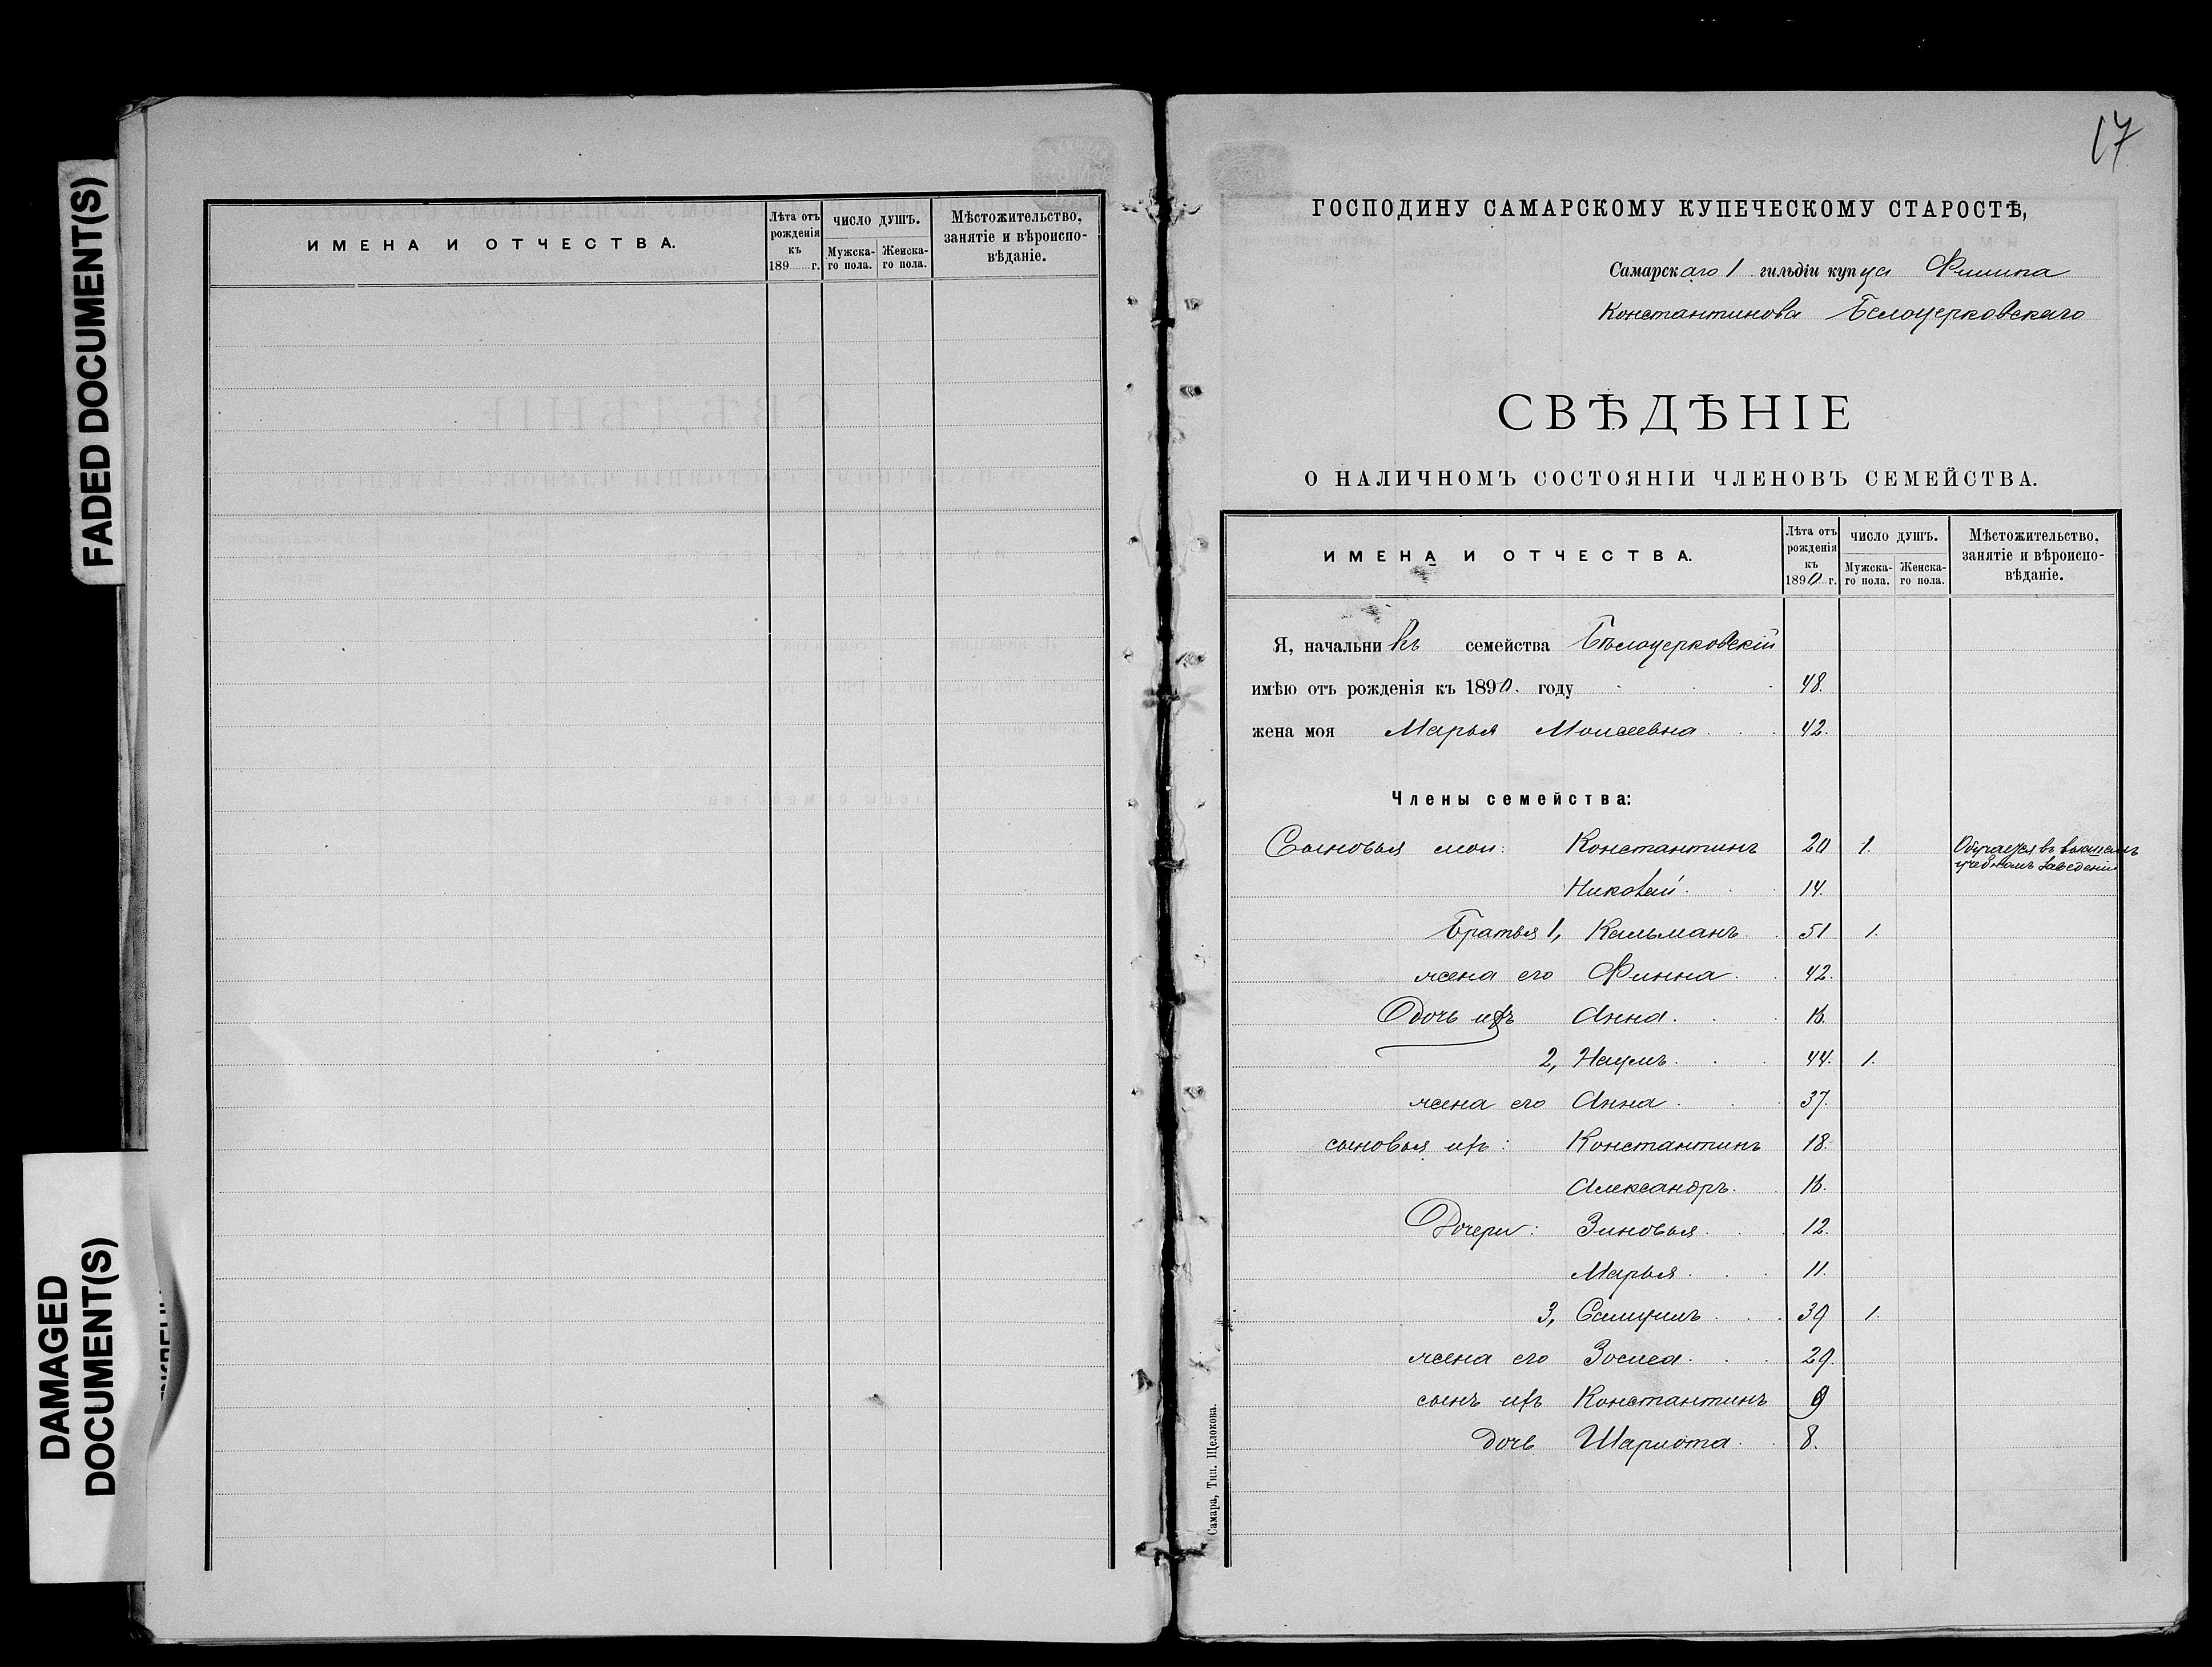 FADED DOCUMENT(S)
DAMAGED
DOCUMENT(S)
ИМЕНА И ОТЧЕСТВА.
Лѣта отъ
рожденія
къ
189 г.
ЧИСЛО ДУШЪ.
Мужска-
го пола.
Женска-
го пола.
Мѣстожительство,
занятіе и вѣроиспо-
вѣданіе.
17
ГОСПОДИНУ САМАРСКОМУ КУПЕЧЕСКОМУ СТАРОСТѢ,
Самарскаго 1 гильдіи купца Филипа
Константинова Белоцерковскаго
СВѢДѢНІЕ
О НАЛИЧНОМЪ СОСТОЯНІИ ЧЛЕНОВЪ СЕМЕЙСТВА.
ИМЕНА И ОТЧЕСТВА.
Лѣта отъ
рожденія
къ
1890 г.
ЧИСЛО ДУШЪ.
Мужска-
го пола.
Женска-
го пола.
Мѣстожительство,
занятіе и вѣроиспо-
вѣданіе.
Я, начальникъ семейства Бѣлоцерковскій
имѣю отъ рожденія къ 1890. году 48.
жена моя Марья Моисеевна 42.
Члены семейства:
Сыновья мои: Константинъ 20 1. Обучается въ высшемъ
учебномъ заведеніи
Николай 14.
Братья 1, Кальманъ 51 1.
жена его Финна 42.
Дочь ихъ Анна. 16.
2, Наумъ 44. 1.
жена его Анна 37.
сыновья ихъ: Константинъ 18.
Александръ. 16.
Дочери: Зиновья 12.
Марья 11.
3, Самуилъ 39 1.
жена его 29.
сынъ ихъ Константинъ 9
дочь Шарлота 8.
Самара, Тип. Щелокова.